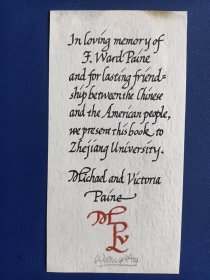 In loving memory of
F. Ward Paine
and for lasting friend-
ship between the Chinese
and the American people,
we present this book to
Zhejiang University.
Michael and Victoria
Paine
M
P
V